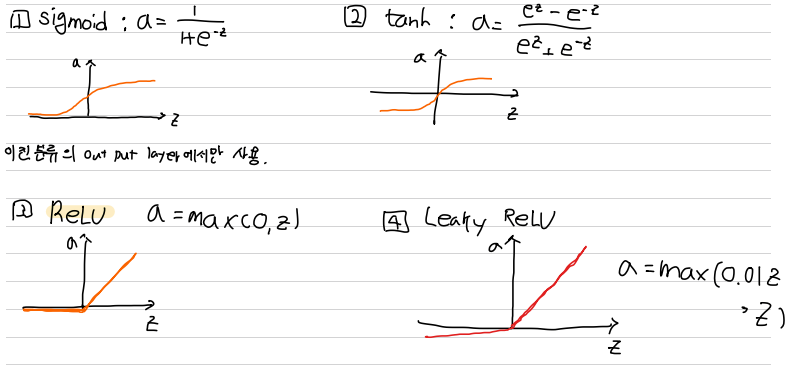 1 sigmoid : a = 1 / 1+e^-z
a
z
이진분류의 out put layer에서만 사용.
2 tanh : a = e^z - e^-z / e^z + e^-z
a
z
3 ReLU a = max(0, z)
a
z
4 Leaky ReLU
a
z
a = max(0.01z
, z)